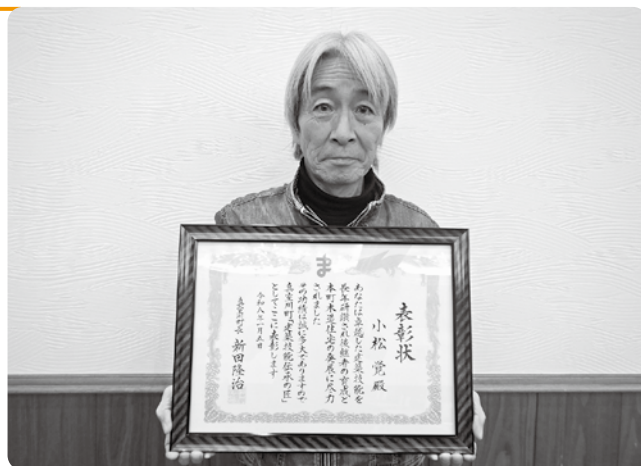 表彰状
小松 覚 殿
あなたは卓越した建築技能を
長年研鑽され後継者の育成と
本町木造住宅の発展に尽力
されました
その功績は誠に多大でありますので
真室川町「建築技能伝承の匠」
としてここに表彰します
令和八年一月五日
真室川町長 新田隆治